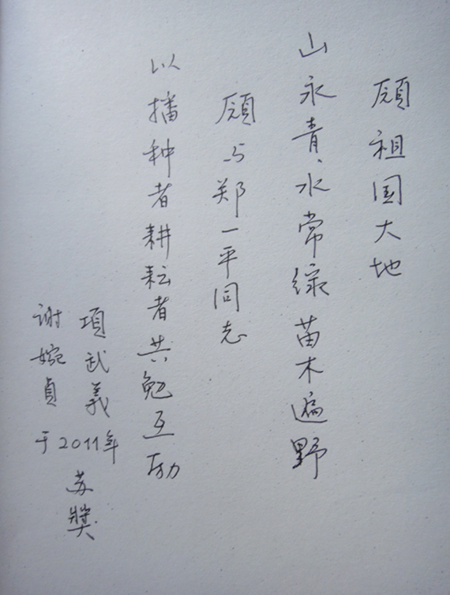 願祖国大地
山永青、水常绿苗木遍野
願与郑一平同志
以播种者耕耘者共勉互励
項武義
谢婉貞
于2011年
苏獎